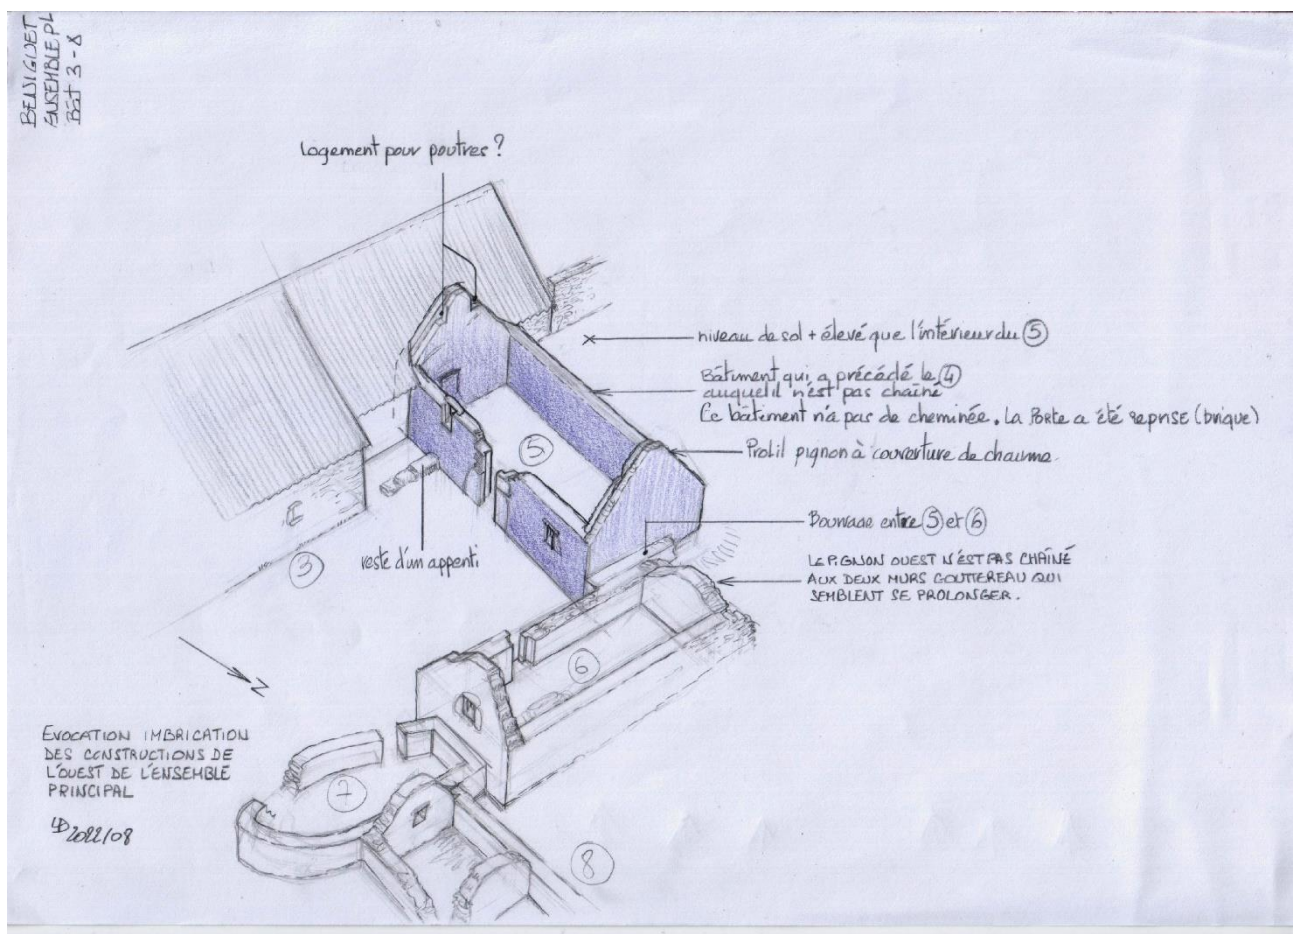 BENIGUET
ENSEMBLE PL
BÂT 3-8
Logement pour poutres ?
niveau de sol + élevé que l'intérieur du 5
Bâtiment qui a précédé le 4
auquel il n'est pas chaîné
Ce bâtiment n'a pas de cheminée. La Porte a été reprise (brique)
Profil pignon à couverture de chaume.
5
Bourrage entre 5 et 6
LE PIGNON OUEST N'EST PAS CHAÎNÉ
AUX DEUX MURS GOUTTEREAU QUI
SEMBLENT SE PROLONGER.
reste d'un appenti
3
6
N
EVOCATION IMBRICATION
DES CONSTRUCTIONS DE
L'OUEST DE L'ENSEMBLE
PRINCIPAL
7
2022/08
8